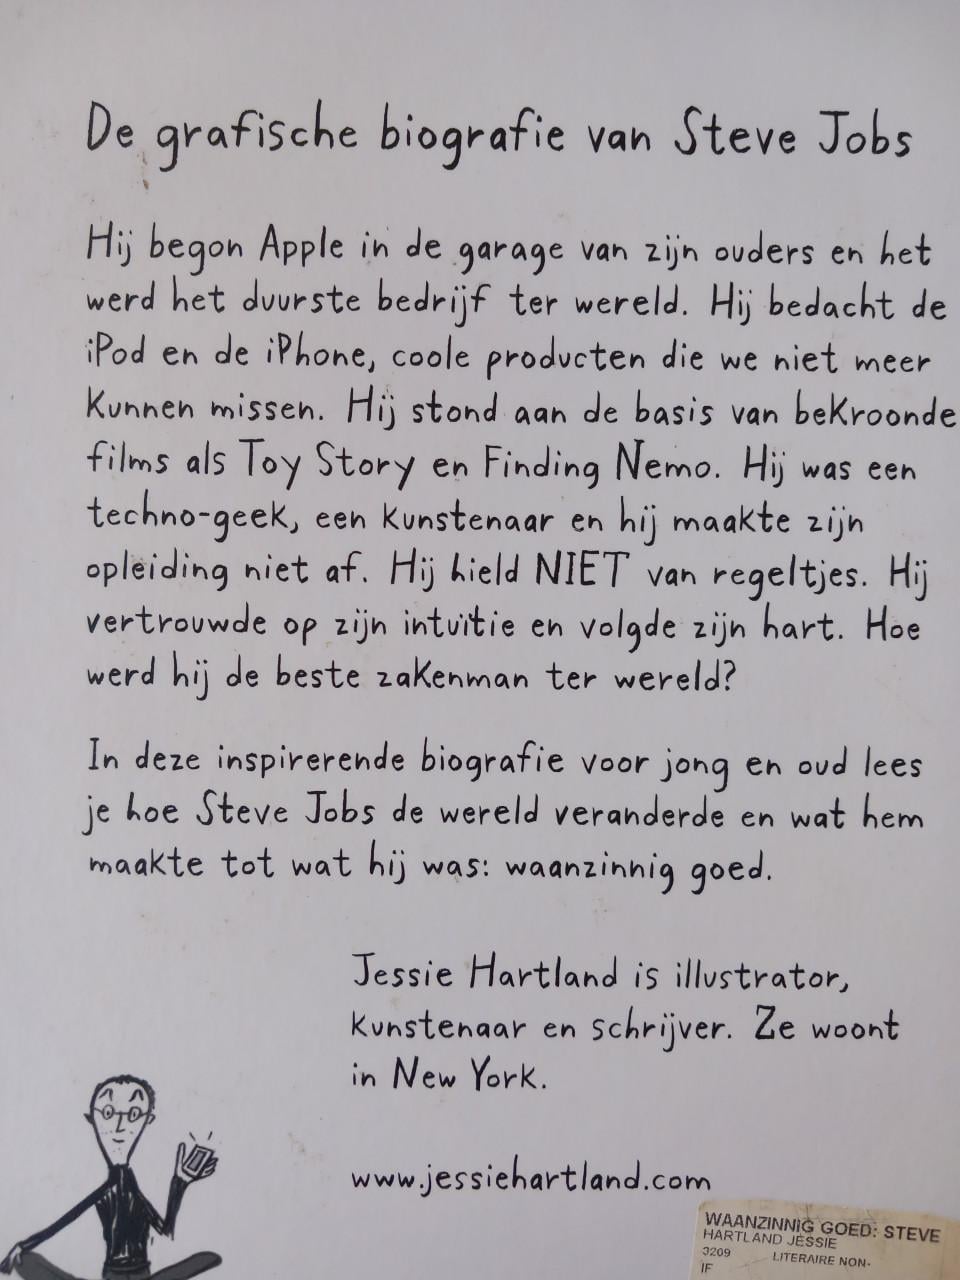 De grafische biografie van Steve Jobs
Hij begon Apple in de garage van zijn ouders en het
werd het duurste bedrijf ter wereld. Hij bedacht de
iPod en de iPhone, coole producten die we niet meer
kunnen missen. Hij stond aan de basis van bekroonde
films als Toy Story en Finding Nemo. Hij was een
techno-geek, een kunstenaar en hij maakte zijn
opleiding niet af. Hij hield NIET van regeltjes. Hij
vertrouwde op zijn intuïtie en volgde zijn hart. Hoe
werd hij de beste zakenman ter wereld?
In deze inspirerende biografie voor jong en oud lees
je hoe Steve Jobs de wereld veranderde en wat hem
maakte tot wat hij was: waanzinnig goed.
Jessie Hartland is illustrator,
kunstenaar en schrijver. Ze woont
in New York.
www.jessiehartland.com
WAANZINNIG GOED: STEVE
HARTLAND JESSIE
3209 LITERAIRE NON-
IF